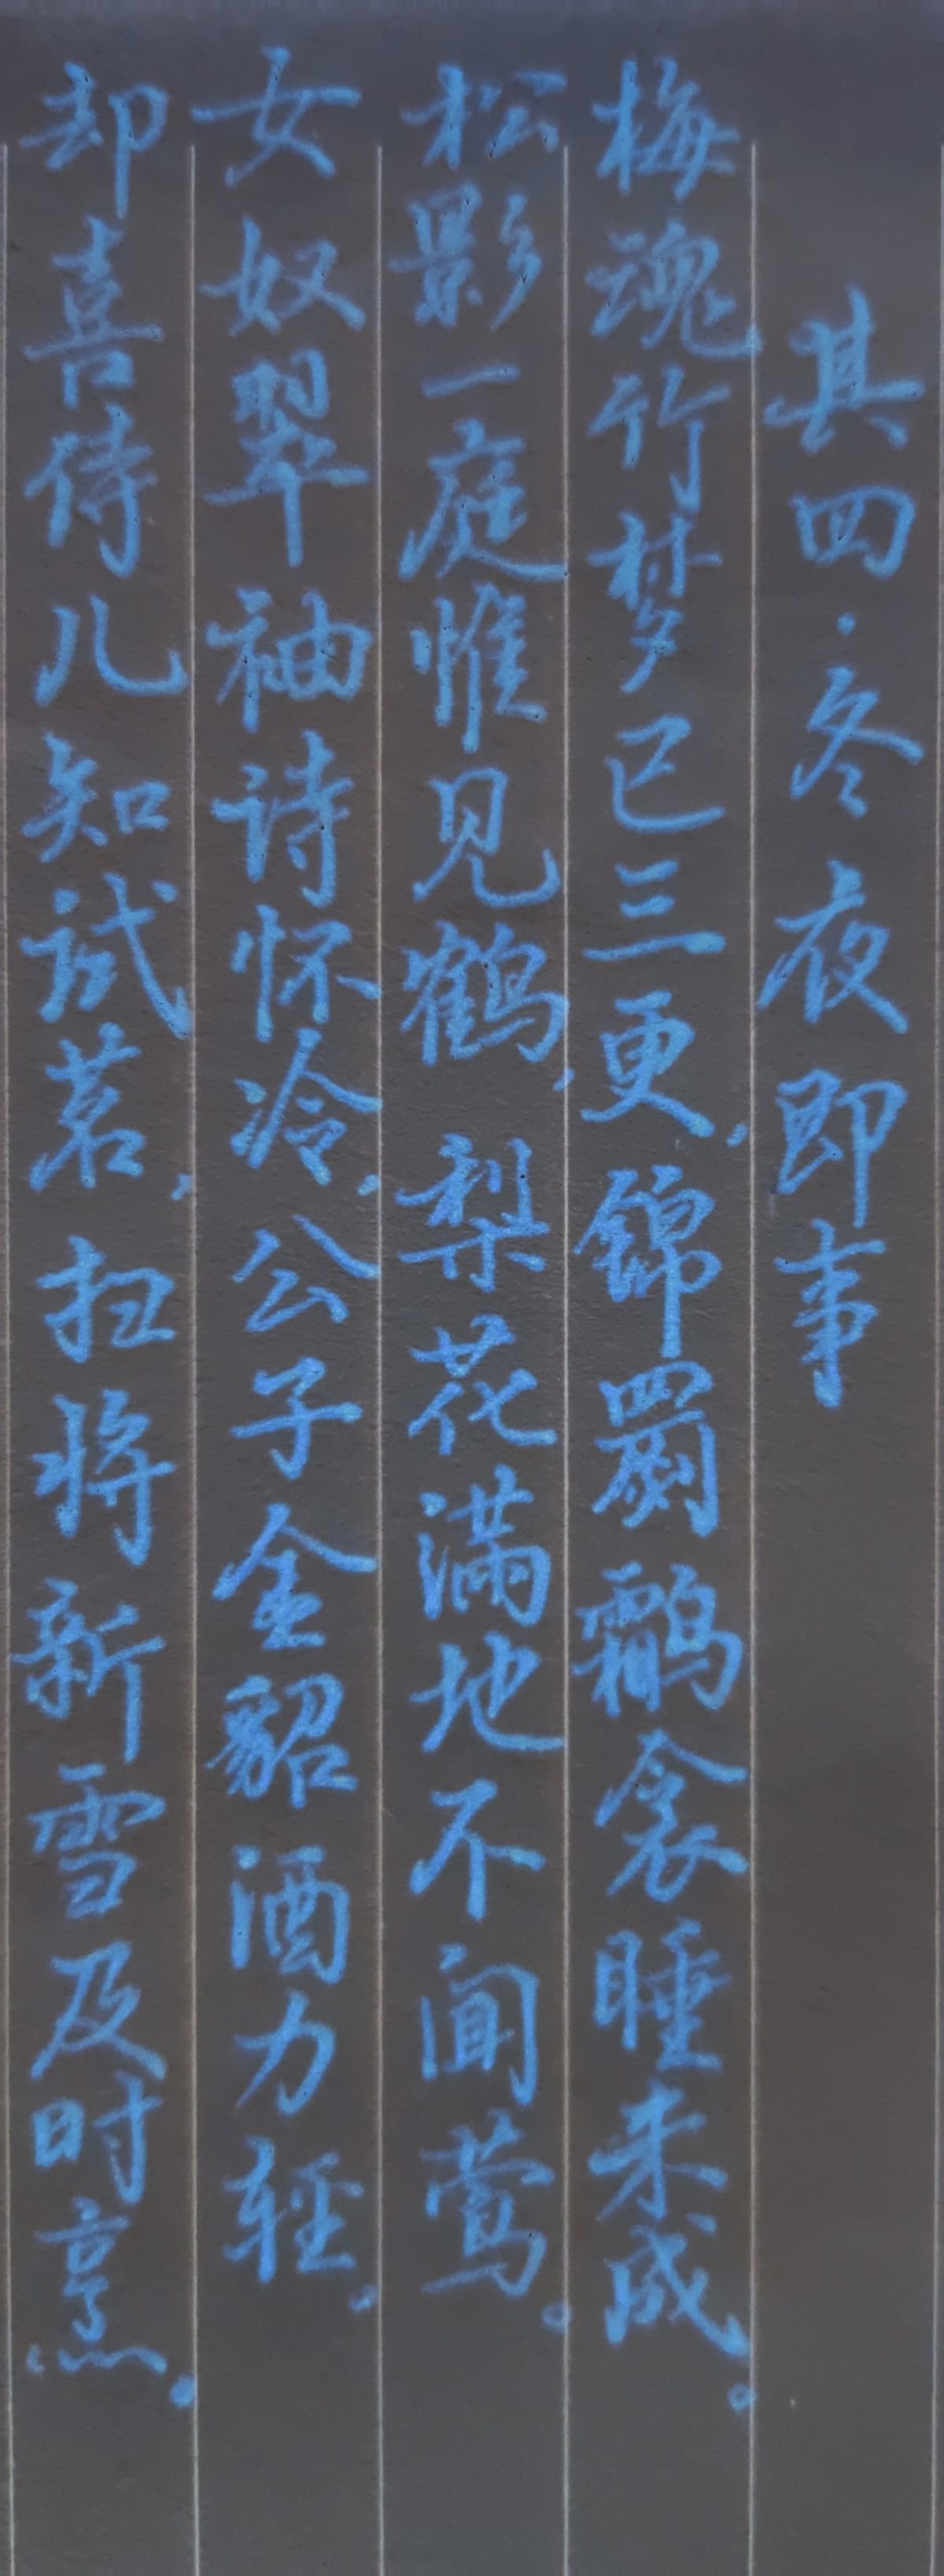 其四·冬夜即事
梅魂竹梦已三更,锦罽鹴衾睡未成。
松影一庭惟见鹤,梨花满地不闻莺。
女奴翠袖诗怀冷,公子金貂酒力轻,
却喜侍儿知试茗,扫将新雪及时烹。